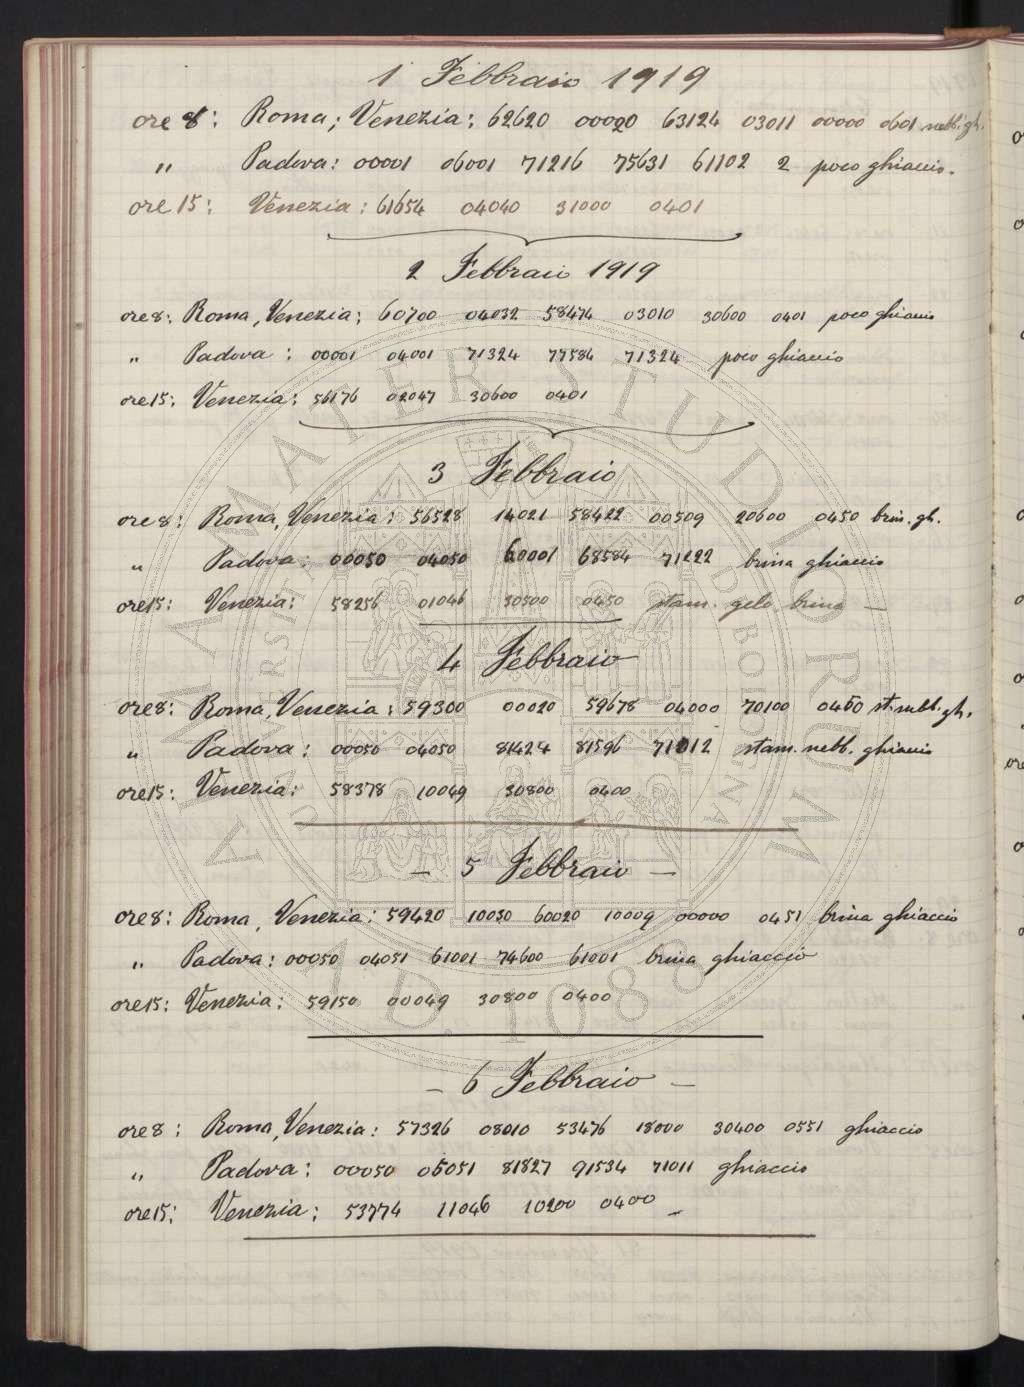 1 Febbraio 1919
ore 8: Roma; Venezia: 62620 00020 63124 03011 00000 0601 nebb. gh.
„ Padova: 00001 06001 71216 75631 61102 2 poco ghiaccio.
ore 15: Venezia: 61654 04040 31000 0401
2 Febbraio 1919
ore 8: Roma, Venezia: 60700 04032 58474 03010 30600 0401 poco ghiaccio
„ Padova: 00001 04001 71324 77584 71324 poco ghiaccio
ore 15: Venezia: 56176 02047 30600 0401
3 Febbraio
ore 8: Roma, Venezia: 56528 14021 58422 00509 20600 0450 brin. gh.
„ Padova: 00050 04050 60001 68584 71222 brina ghiaccio
ore 15: Venezia: 58256 01046 30500 0450 stam. gelo brina —
4 Febbraio
ore 8: Roma, Venezia: 59300 00020 59678 04000 70100 0450 st. nebb. gh.
„ Padova: 00050 04050 81424 81596 71012 stam. nebb. ghiaccio
ore 15: Venezia: 58378 10049 30800 0400
— 5 Febbraio —
ore 8: Roma, Venezia: 59420 10030 60020 10009 00000 0451 brina ghiaccio
„ Padova: 00050 04051 61001 74600 61001 brina ghiaccio
ore 15: Venezia: 59150 00049 30800 0400
— 6 Febbraio —
ore 8: Roma, Venezia: 57326 08010 53476 18000 30400 0551 ghiaccio
„ Padova: 00050 05051 81827 91534 71011 ghiaccio
ore 15: Venezia: 53774 11046 10200 0400 —
ALMA MATER STUDIORUM
UNIVERSITÀ DI BOLOGNA
A.D. 1088